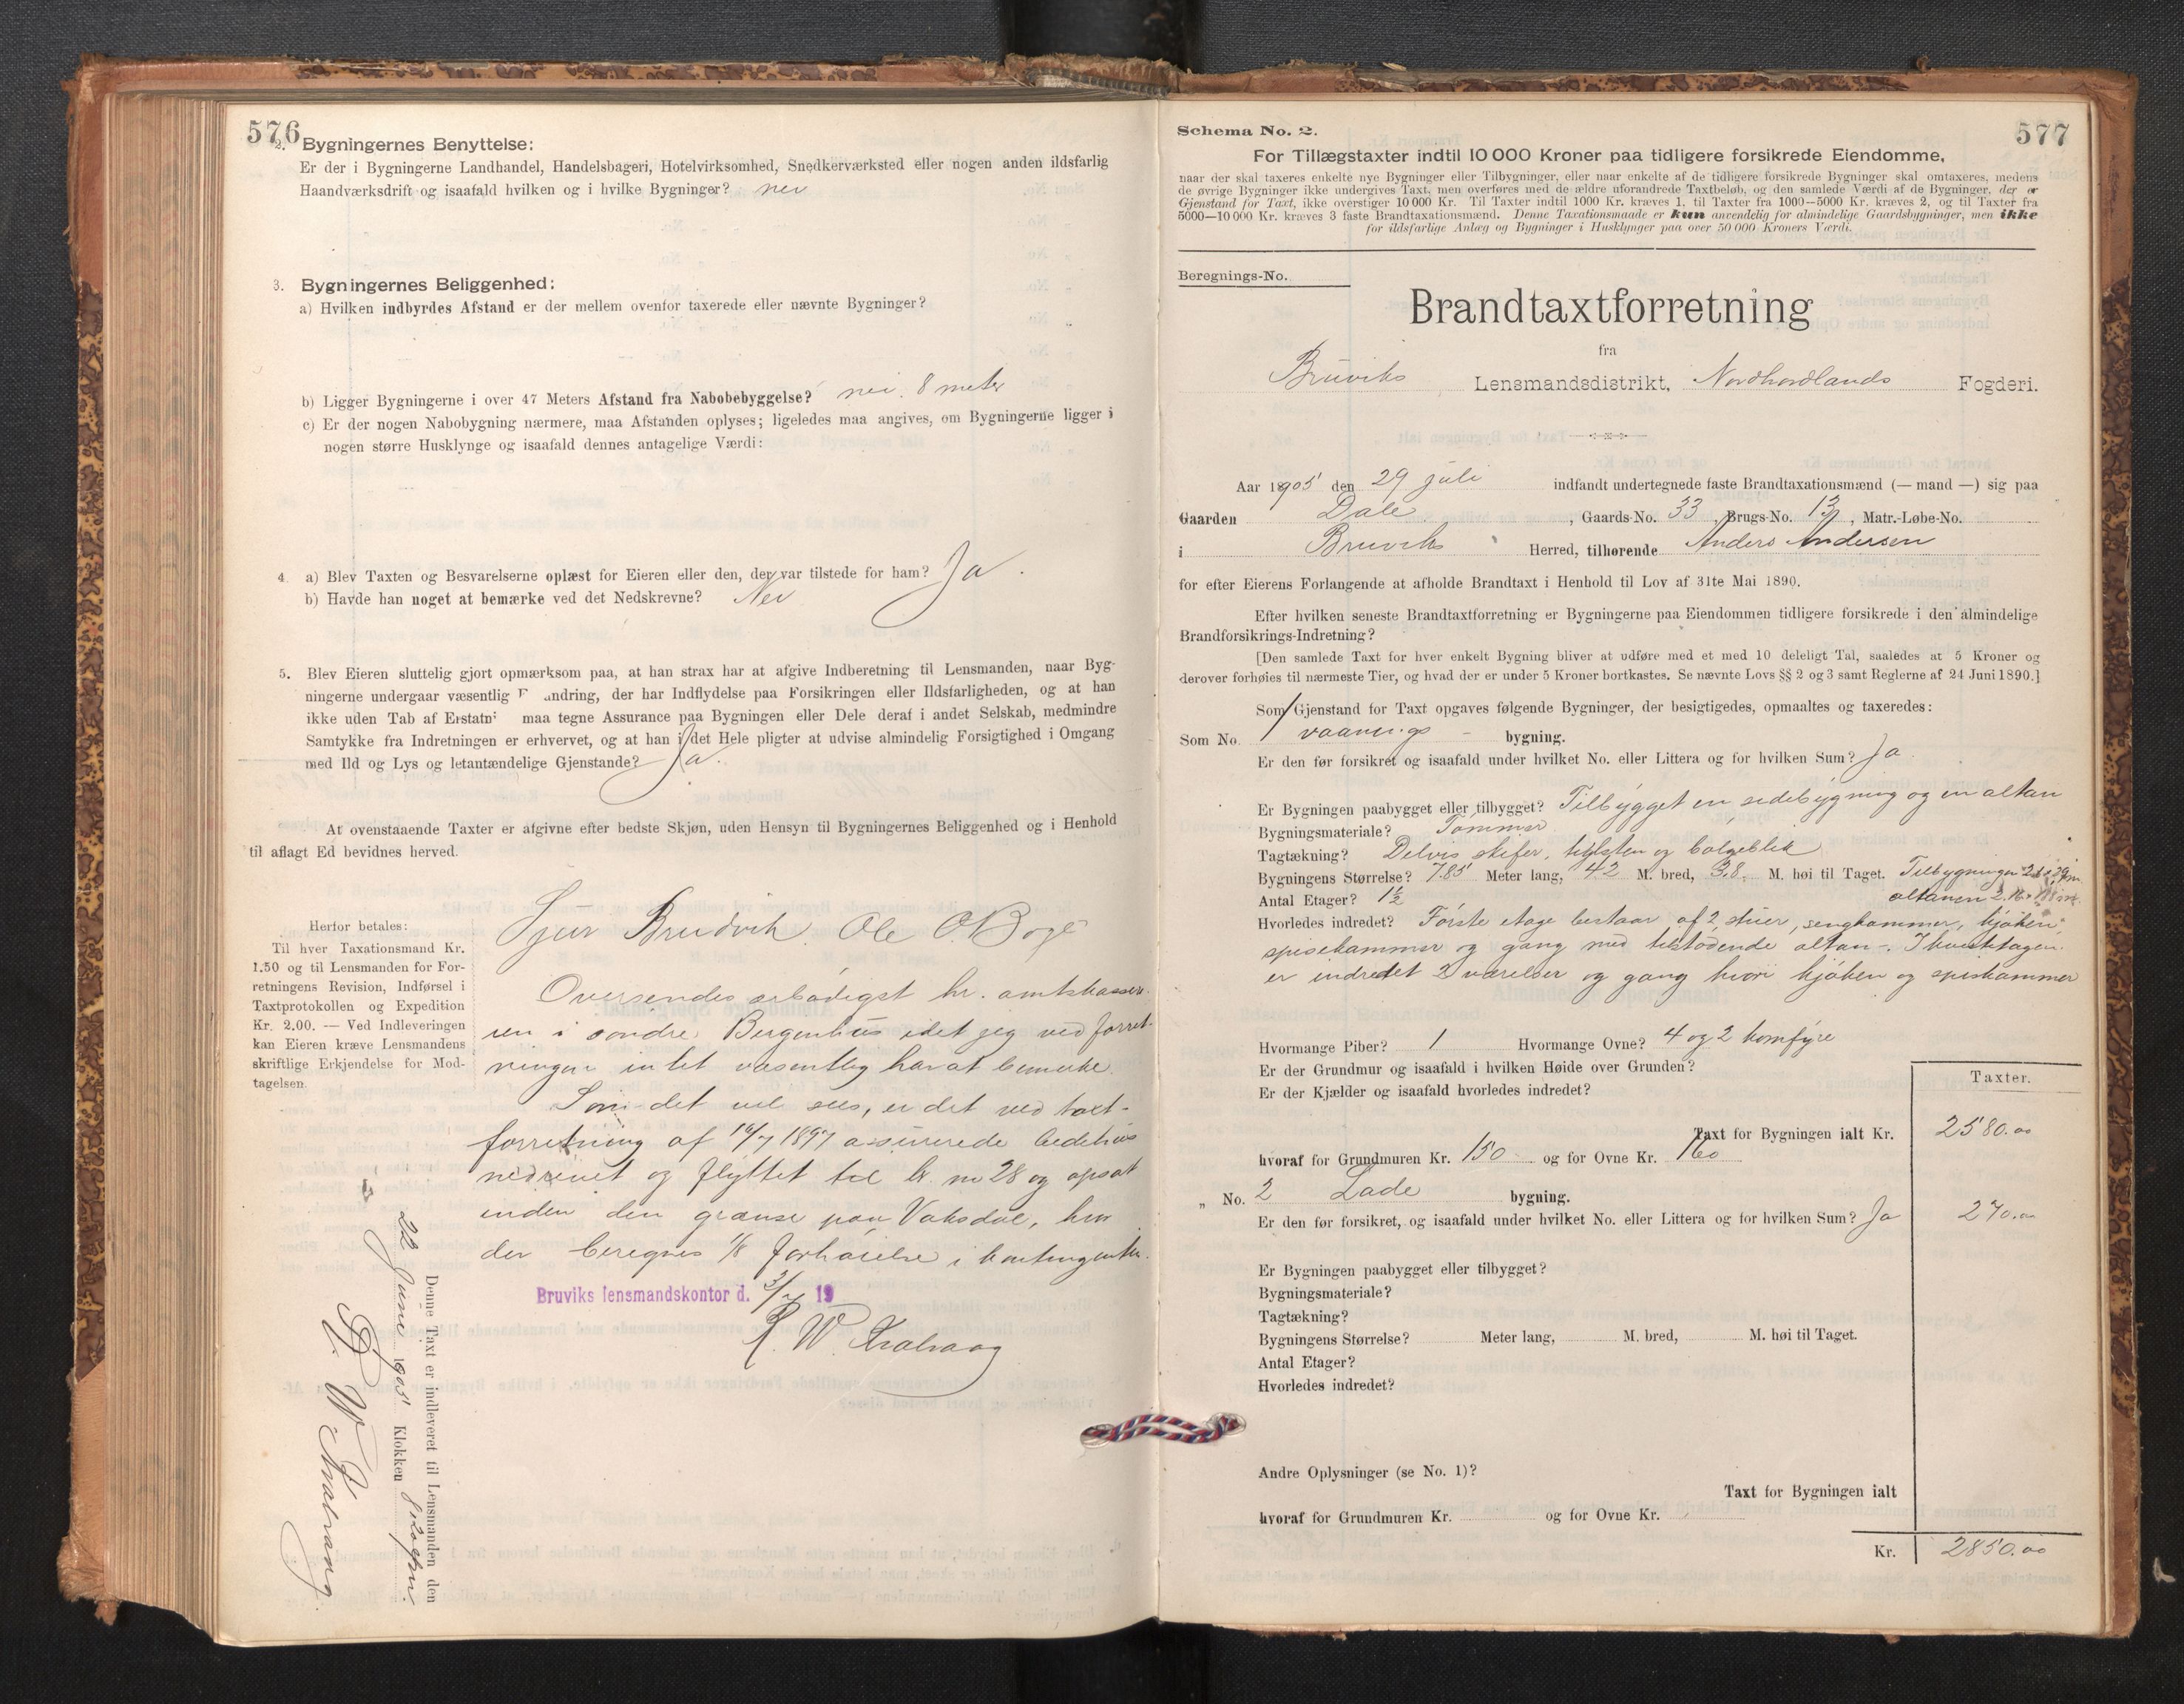 576
2. Bygningernes Benyttelse:
Er der i Bygningerne Landhandel, Handelsbageri, Hotelvirksomhed, Snedkerværksted eller nogen anden ildsfarlig
Haandværksdrift og isaafald hvilken og i hvilke Bygninger? nei
3. Bygningernes Beliggenhed:
a) Hvilken indbyrdes Afstand er der mellem ovenfor taxerede eller nævnte Bygninger?
b) Ligger Bygningerne i over 47 Meters Afstand fra Nabobebyggelse? nei. 8 meter
c) Er der nogen Nabobygning nærmere, maa Afstanden oplyses; ligeledes maa angives, om Bygningerne ligger i
nogen større Husklynge og isaafald dennes antagelige Værdi:
4. a) Blev Taxten og Besvarelserne oplæst for Eieren eller den, der var tilstede for ham? Ja.
b) Havde han noget at bemærke ved det Nedskrevne? Nei
5. Blev Eieren sluttelig gjort opmærksom paa, at han strax har at afgive Indberetning til Lensmanden, naar Byg-
ningerne undergaar væsentlig F andring, der har Indflydelse paa Forsikringen eller Ildsfarligheden, og at han
ikke uden Tab af Erstatn maa tegne Assurance paa Bygningen eller Dele deraf i andet Selskab, medmindre
Samtykke fra Indretningen er erhvervet, og at han i det Hele pligter at udvise almindelig Forsigtighed i Omgang
med Ild og Lys og letantændelige Gjenstande? Ja.
At ovenstaaende Taxter er afgivne efter bedste Skjøn, uden Hensyn til Bygningernes Beliggenhed og i Henhold
til aflagt Ed bevidnes herved.
Sjur Brudvik. Ole O. Boge
Herfor betales:
Til hver Taxationsmand Kr.
1.50 og til Lensmanden for For-
retningens Revision, Indførsel i
Taxtprotokollen og Expedition
Kr. 2.00. — Ved Indleveringen
kan Eieren kræve Lensmandens
skriftlige Erkjendelse for Mod-
tagelsen.
Oversendes ærbødigst hr. amtskasser-
ren i søndre Bergenhus idet jeg ved forret-
ningen intet væsentlig har at bemerke.
Som det vil sees, er det ved taxt-
forretning af 16/7 1897 assurerede bedehus
nedrevet og flyttet til br. no 28 og opsat
inden den grænse paa Vaksdal, hvor
der beregnes 1/8 forhøielse i kontingenten.
Bruviks lensmandskontor d. 3/7 19
Denne Taxt er indleveret til Lensmanden den
22 June 1905 Klokken 8
577
Schema No. 2.
For Tillægstaxter indtil 10 000 Kroner paa tidligere forsikrede Eiendomme,
naar der skal taxeres enkelte nye Bygninger eller Tilbygninger, eller naar enkelte af de tidligere forsikrede Bygninger skal omtaxeres, medens
de øvrige Bygninger ikke undergives Taxt, men overføres med de ældre uforandrede Taxtbeløb, og den samlede Værdi af de Bygninger, der er
Gjenstand for Taxt, ikke overstiger 10 000 Kr. Til Taxter indtil 1000 Kr. kræves 1, til Taxter fra 1000—5000 Kr. kræves 2, og til Taxter fra
5000—10 000 Kr. kræves 3 faste Brandtaxationsmænd. Denne Taxationsmaade er kun anvendelig for almindelige Gaardsbygninger, men ikke
for ildsfarlige Anlæg og Bygninger i Husklynger paa over 50 000 Kroners Værdi.
Beregnings-No.
Brandtaxtforretning
fra
Bruviks Lensmandsdistrikt, Nordhordlands Fogderi.
Aar 1905 den 29 juli indfandt undertegnede faste Brandtaxationsmænd (— mand —) sig paa
Gaarden Dale, Gaards-No. 33, Brugs-No. 13, Matr.-Løbe-No.
i Bruviks Herred, tilhørende Anders Andersen
for efter Eierens Forlangende at afholde Brandtaxt i Henhold til Lov af 31te Mai 1890.
Efter hvilken seneste Brandtaxtforretning er Bygningerne paa Eiendommen tidligere forsikrede i den almindelige
Brandforsikrings-Indretning?
[Den samlede Taxt for hver enkelt Bygning bliver at udføre med et med 10 deleligt Tal, saaledes at 5 Kroner og
derover forhøies til nærmeste Tier, og hvad der er under 5 Kroner bortkastes. Se nævnte Lovs §§ 2 og 3 samt Reglerne af 24 Juni 1890.]
Som Gjenstand for Taxt opgaves følgende Bygninger, der besigtigedes, opmaaltes og taxeredes:
Som No. 1 vaanings - bygning.
Er den før forsikret og isaafald under hvilket No. eller Littera og for hvilken Sum? Ja
Er Bygningen paabygget eller tilbygget? Tilbygget en sidebygning og en altan
Bygningsmateriale? Tømmer
Tagtækning? Delvis skifer, teglsten og bølgeblik
Bygningens Størrelse? 7.85 Meter lang, 42 M. bred, 3.8. M. høi til Taget. Tilbygningen
Antal Etager? 1½ altanen
Hvorledes indredet? Første etage bestaar af 2 stuer, sengkammer, kjøken,
spisekammer og gang med tilstødende altan. I kvistetagen
er indredet 2 værelser og gang hvori kjøken og spiskammer
Hvormange Piber? 1 Hvormange Ovne? 4 og 2 komfyre
Er der Grundmur og isaafald i hvilken Høide over Grunden?
Er der Kjælder og isaafald hvorledes indredet?
Taxter.
Taxt for Bygningen ialt Kr. 2580.00
hvoraf for Grundmuren Kr. 150 og for Ovne Kr. 160
„ No. 2 Lade bygning.
Er den før forsikret, og isaafald under hvilket No. eller Littera og for hvilken Sum? Ja 270.00
Er Bygningen paabygget eller tilbygget?
Bygningsmateriale?
Tagtækning?
Bygningens Størrelse? Meter lang, M. bred, M. høi til Taget.
Antal Etager?
Hvorledes indredet?
Andre Oplysninger (se No. 1)?
Taxt for Bygningen ialt
hvoraf for Grundmuren Kr. og for Ovne Kr.
Kr. 2850.00